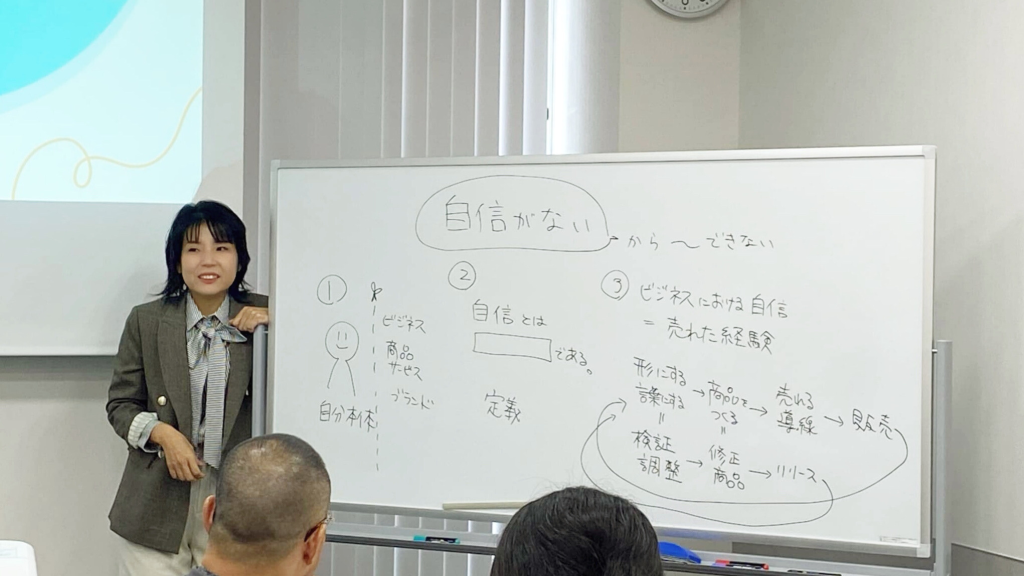 自信がない
から〜できない
①
自分本体
ビジネス
商品
サービス
ブランド
②
自信とは
である。
定義
③ ビジネスにおける自信
= 売れた経験
形にする
言葉にする → 商品をつくる → 売れる導線 → 販売
〃 〃
検証
調整 → 修正商品 → リリース